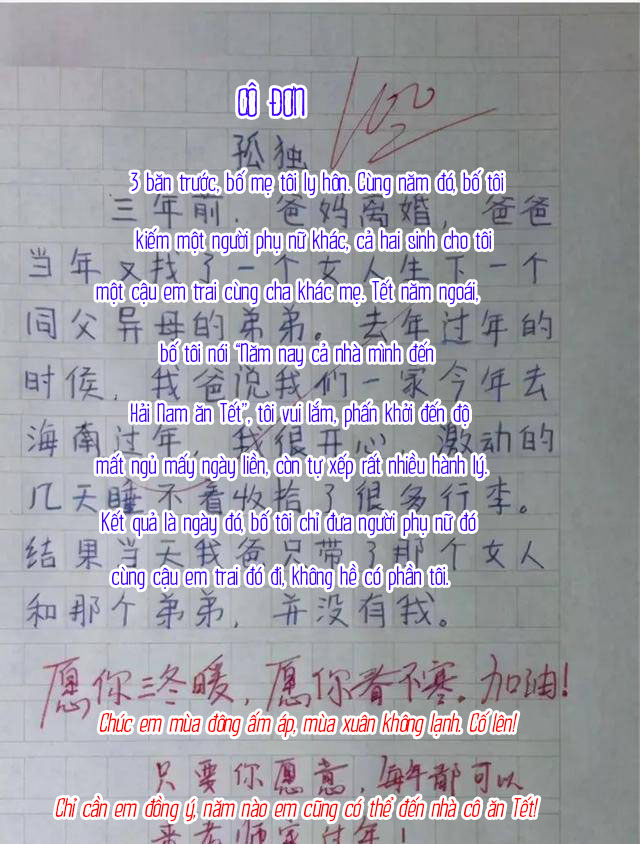 CÔ ĐƠN
100
孤独
3 băn trước, bố mẹ tôi ly hôn. Cùng năm đó, bố tôi
三年前，爸妈离婚，爸爸
kiếm một người phụ nữ khác, cả hai sinh cho tôi
当年又找了一个女人生下一个
một cậu em trai cùng cha khác mẹ. Tết năm ngoái,
同父异母的弟弟。去年过年的
bố tôi nói “Năm nay cả nhà mình đến
时候，我爸说我们一家今年去
Hải Nam ăn Tết”, tôi vui lắm, phấn khởi đến độ
海南过年，我很开心 激动的
mất ngủ mấy ngày liền, còn tự xếp rất nhiều hành lý.
几天睡不着收拾了很多行李。
Kết quả là ngày đó, bố tôi chỉ đưa người phụ nữ đó
结果当天我爸只带了那个女人
cùng cậu em trai đó đi, không hề có phần tôi.
和那个弟弟，并没有我。
愿你三冬暖，愿你春不寒。加油!
Chúc em mùa đông ấm áp, mùa xuân không lạnh. Cố lên!
只要你愿意，每年都可以
Chỉ cần em đồng ý, năm nào em cũng có thể đến nhà cô ăn Tết!
来老师家过年!